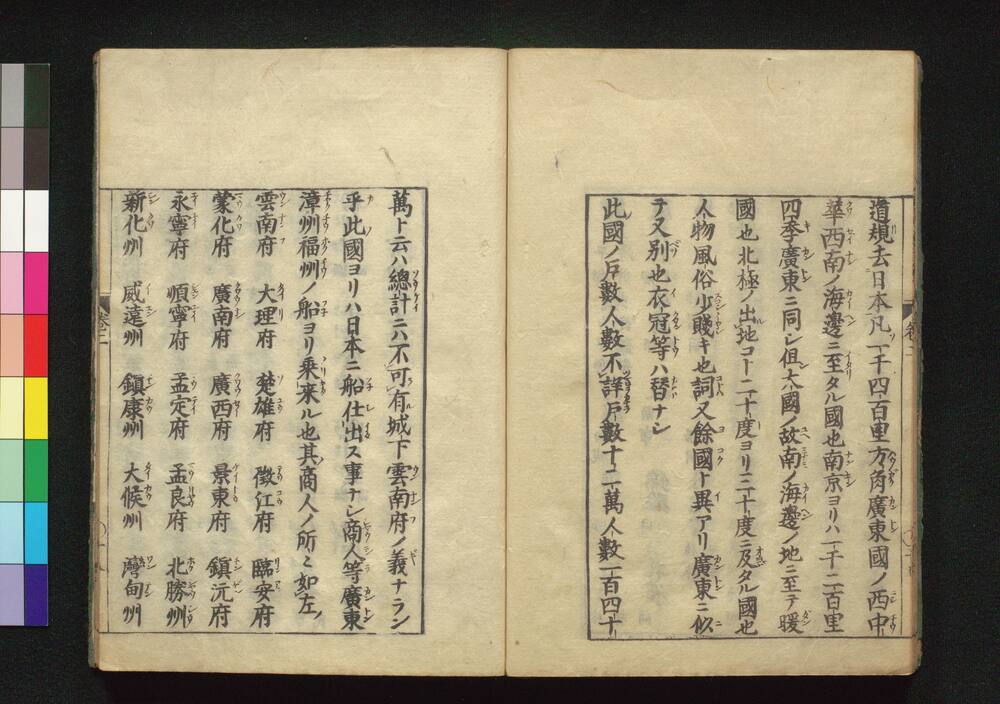 道規去日本凡ソ一千四百里方角廣東國ノ西中
華西南ノ海邊ニ至タル國也南京ヨリハ一千二百里
四季廣東ニ同シ但大國ノ故南ノ海邊ノ地ニ至テ暖
國也北極ノ出地コト二十度ヨリ三十度ニ及タル國也
人物風俗少賤キ也詞又餘國ト異アリ廣東ニ似
テ又別也衣冠等ハ替ナシ
此國ノ戸數人數不詳戸數十二萬人數一百四十
萬ト云ハ總計ニハ不可有城下雲南府ノ義ナラン
乎此國ヨリハ日本ニ船仕出ス事ナシ商人等廣東
漳州福州ノ船ヨリ乗来ル也其商人ノ所〻如左
雲南府 大理府 楚雄府 徴江府 臨安府
蒙化府 廣南府 廣西府 景東府 鎮沅府
永寧府 順寧府 孟定府 孟良府 北勝州
新化州 威遠州 鎮康州 大候州 灣甸州